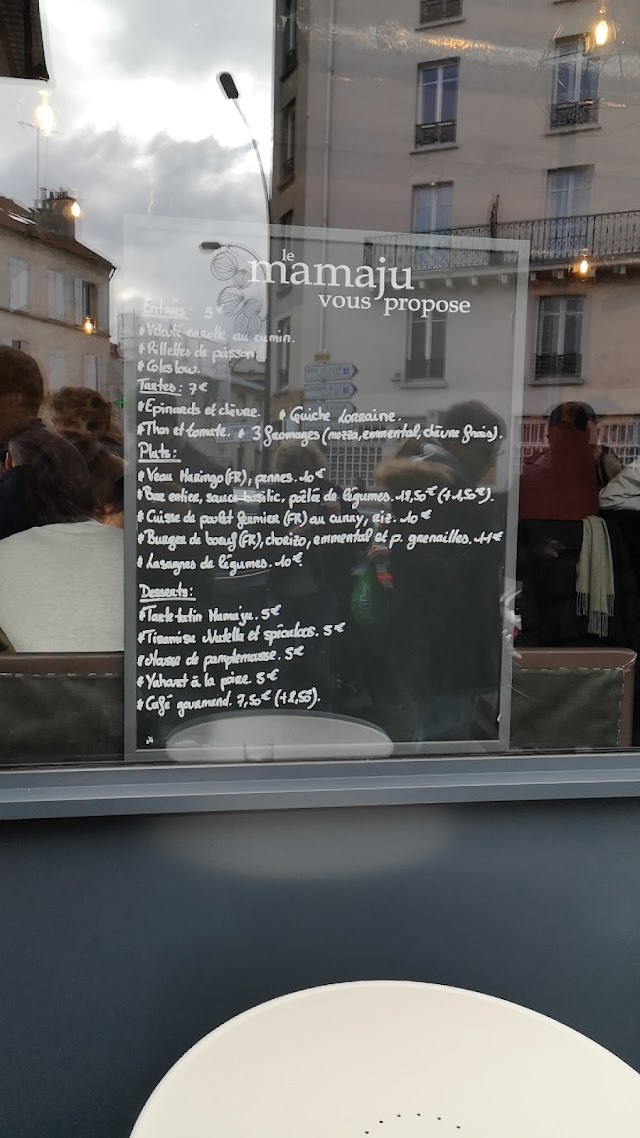 le
mamaju
vous propose
Entrées: 5€
* Velouté carotte au cumin.
* Rillettes de poisson
* Coleslow.
Tartes: 7€
* Epinards et chèvre. * Quiche Lorraine.
* Thon et tomate. * 3 fromages (mozza, emmental, chèvre frais).
Plats:
* Veau Maringo (FR), pennes. 10€
* Bar entier, sauce basilic, poêlée de légumes. 12,50€ (+1,50€).
* Cuisse de poulet fermier (FR) au curry, riz. 10€
* Burger de boeuf (FR), chorizo, emmental et p. grenailles. 11€
* Lasagnes de légumes. 10€
Desserts:
* Tarte tatin Mamaju. 5€
* Tiramisu Nutella et spéculoos. 5€
* Mousse de pamplemousse. 5€
* Yahourt à la poire. 5€
* Café gourmand. 7,50€